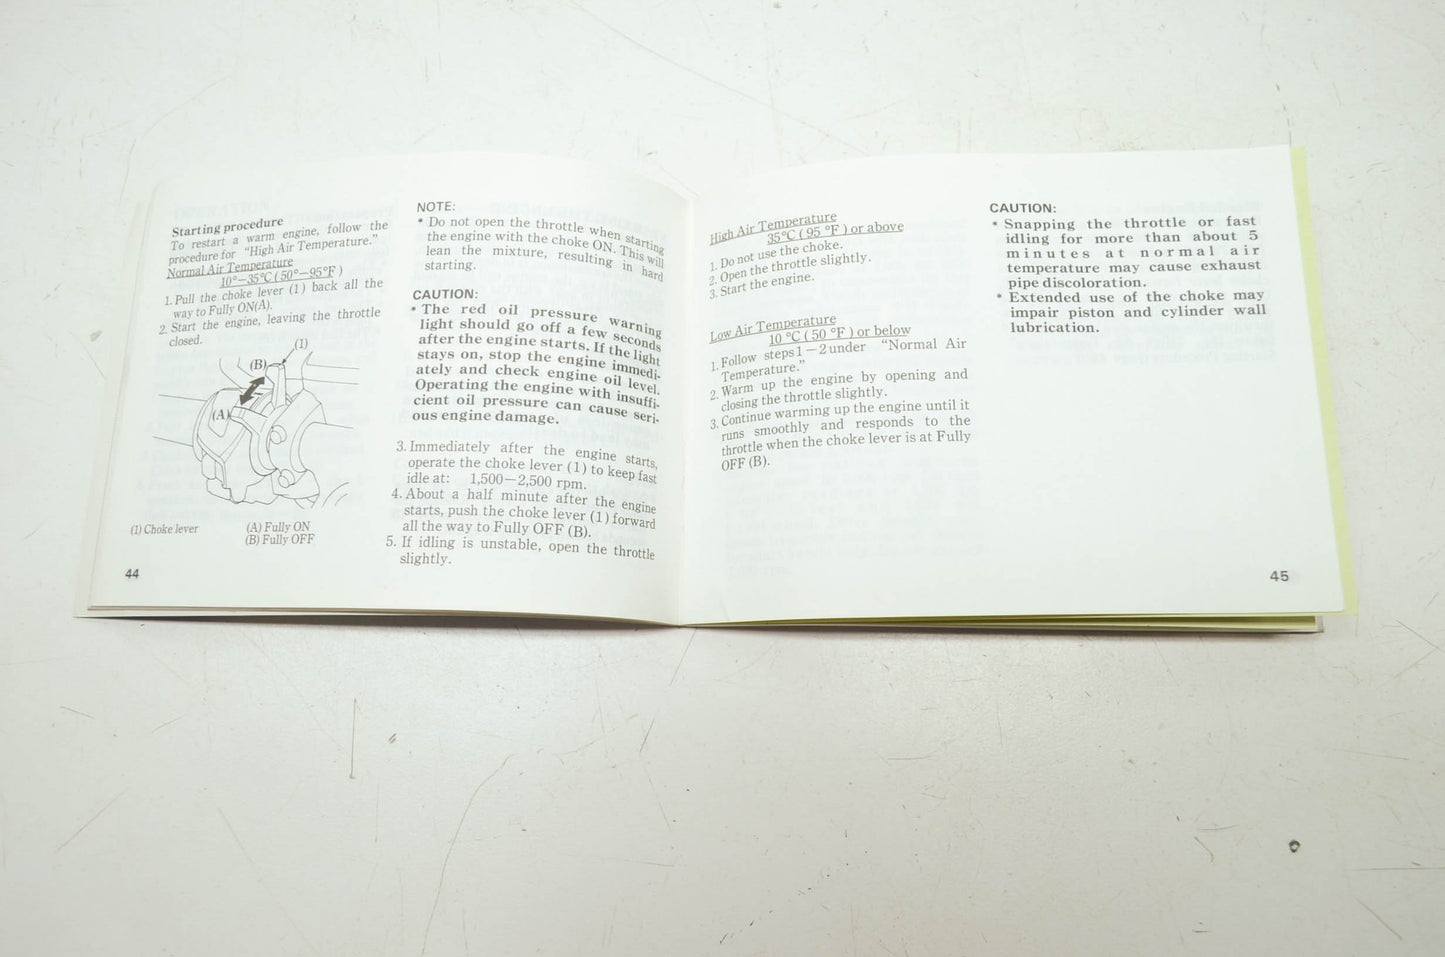 Starting procedure
To restart a warm engine, follow the
procedure for "High Air Temperature."
Normal Air Temperature
10°—35°C (50°—95°F)
1. Pull the choke lever (1) back all the
way to Fully ON(A).
2. Start the engine, leaving the throttle
closed.
(1)
(B)
(A)
(1) Choke lever
(A) Fully ON
(B) Fully OFF
44
NOTE:
* Do not open the throttle when starting
the engine with the choke ON. This will
lean the mixture, resulting in hard
starting.
CAUTION:
* The red oil pressure warning
light should go off a few seconds
after the engine starts. If the light
stays on, stop the engine immedi-
ately and check engine oil level.
Operating the engine with insuffi-
cient oil pressure can cause seri-
ous engine damage.
3. Immediately after the engine starts,
operate the choke lever (1) to keep fast
idle at: 1,500—2,500 rpm.
4. About a half minute after the engine
starts, push the choke lever (1) forward
all the way to Fully OFF (B).
5. If idling is unstable, open the throttle
slightly.
High Air Temperature
35°C (95 °F) or above
1. Do not use the choke.
2. Open the throttle slightly.
3. Start the engine.
Low Air Temperature
10 °C (50 °F) or below
1. Follow steps 1—2 under "Normal Air
Temperature."
2. Warm up the engine by opening and
closing the throttle slightly.
3. Continue warming up the engine until it
runs smoothly and responds to the
throttle when the choke lever is at Fully
OFF (B).
CAUTION:
* Snapping the throttle or fast
idling for more than about 5
minutes at normal air
temperature may cause exhaust
pipe discoloration.
* Extended use of the choke may
impair piston and cylinder wall
lubrication.
45